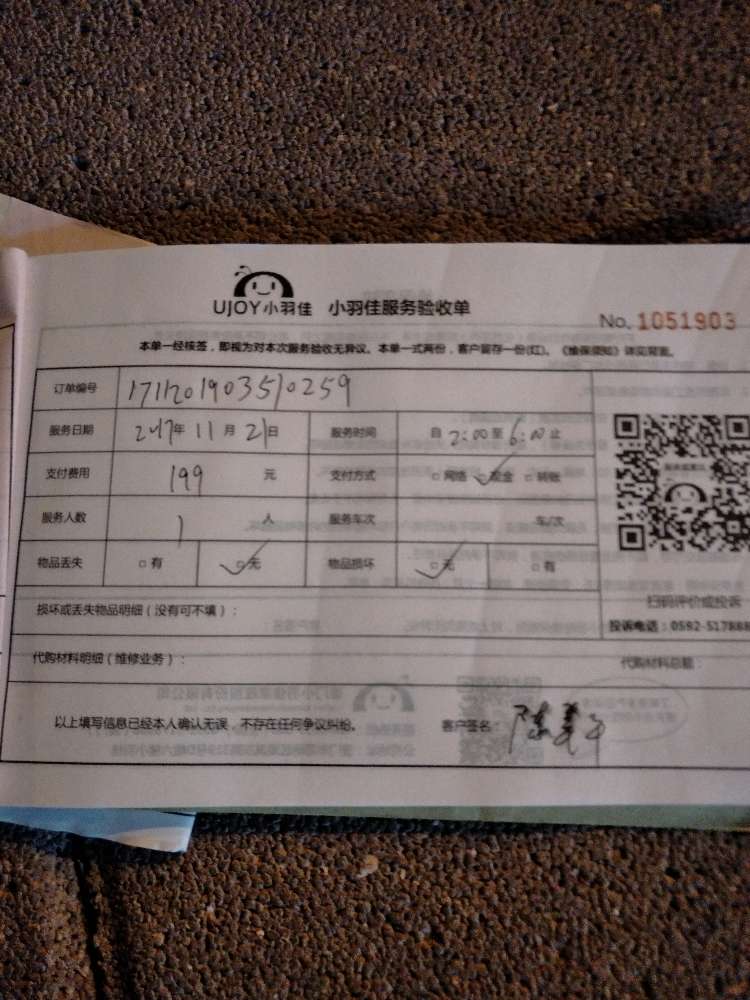 UJOY小羽佳 小羽佳服务验收单
No. 1051903
本单一经核签,即视为对本次服务验收无异议。本单一式两份,客户留存一份(红)。《维保须知》详见背面。
订单编号 1711201903510259
服务日期 2017年 11月 21日 服务时间 自 2:00至 6:00止
支付费用 199 元 支付方式 □网络 ✓现金 □转账
服务人数 1 人 服务车次 车/次
物品丢失 □有 ✓无 物品损坏 ✓无 □有
扫码评价或投诉
损坏或丢失物品明细(没有可不填):
投诉电话:0592-517888
代购材料明细(维修业务): 代购材料总额:
以上填写信息已经本人确认无误,不存在任何争议纠纷。 客户签名: 陈